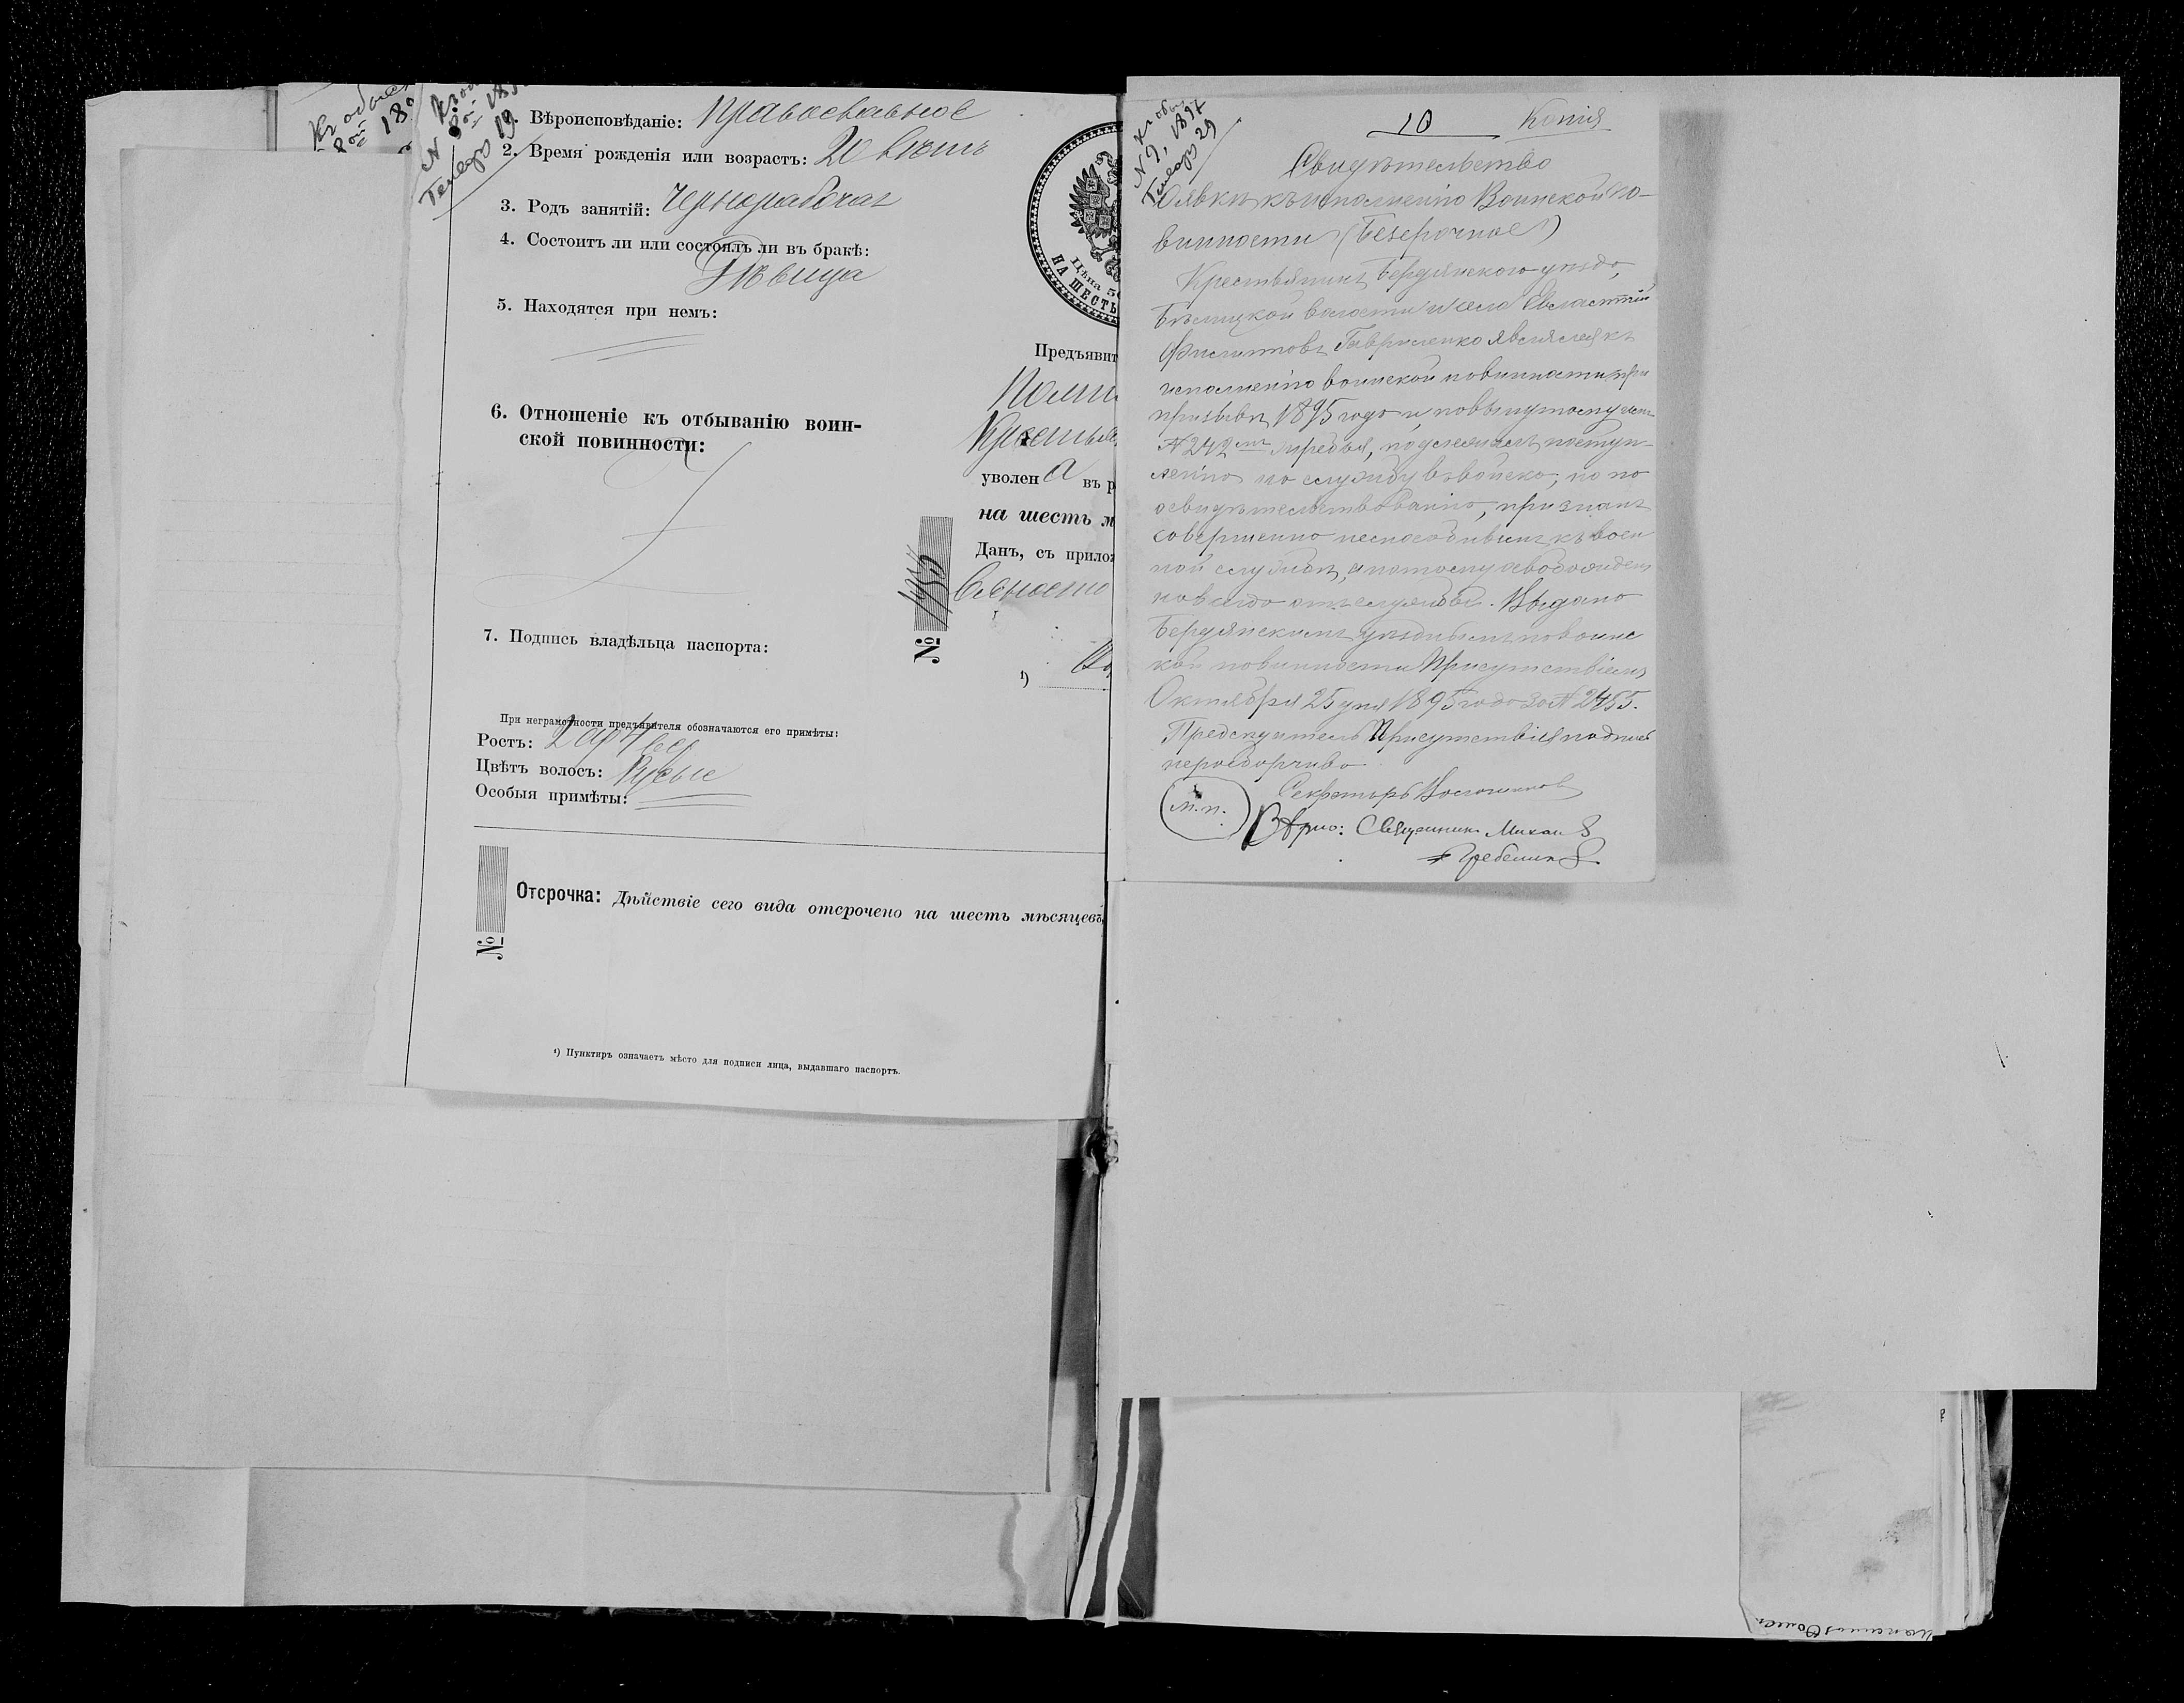 Къ обыс
18
N
Генваря 19.
1. Вѣроисповѣданіе: Православное
2. Время рожденія или возрастъ: 20 лѣтъ
3. Родъ занятій: Чернорабочая
4. Состоитъ ли или состоялъ ли въ бракѣ:
Дѣвица
5. Находятся при немъ:
6. Отношеніе къ отбыванію воин-
ской повинности:
7. Подпись владѣльца паспорта:
При неграмотности предъявителя обозначаются его примѣты:
Ростъ: 2 ар 4 вер
Цвѣтъ волосъ: Русые
Особыя примѣты:
№
Отсрочка: Дѣйствіе сего вида отсрочено на шесть мѣсяцевъ
¹) Пунктиръ означаетъ мѣсто для подписи лица, выдавшаго паспортъ.
Цѣна 50
НА ШЕСТЬ
Предъявит
Крестья
уволен а въ р
на шесть м
Данъ, съ прилож
№
¹)
Къ обыс
N 9, 1897
Генваря 29
10 Копія
Свидѣтельство
О явкѣ къ исполненію Воинской по-
винности (Безсрочное)
Крестьянинъ Бердянскаго уѣзда,
волости и села Евластій
Филипповъ Гавриленко являлся къ
исполненію воинской повинности при
призывѣ 1895 года и, по вынутому имъ
№ 242 жребья, подлежалъ поступ-
ленію на службу въ войска; но по
освидѣтельствованію, признанъ
совершенно неспособнымъ къ воен
ной службѣ, а потому освобожденъ
навсегда отъ службы. Выдано
Бердянскимъ уѣзднымъ по воинс
кой повинности Присутствіемъ
Октября 25 дня 1895 года за № 2455.
Предсѣдатель Присутствія подпись
неразборчиво
Секретарь
М.П.
Вѣрно: Священникъ Михаил
Гребенник